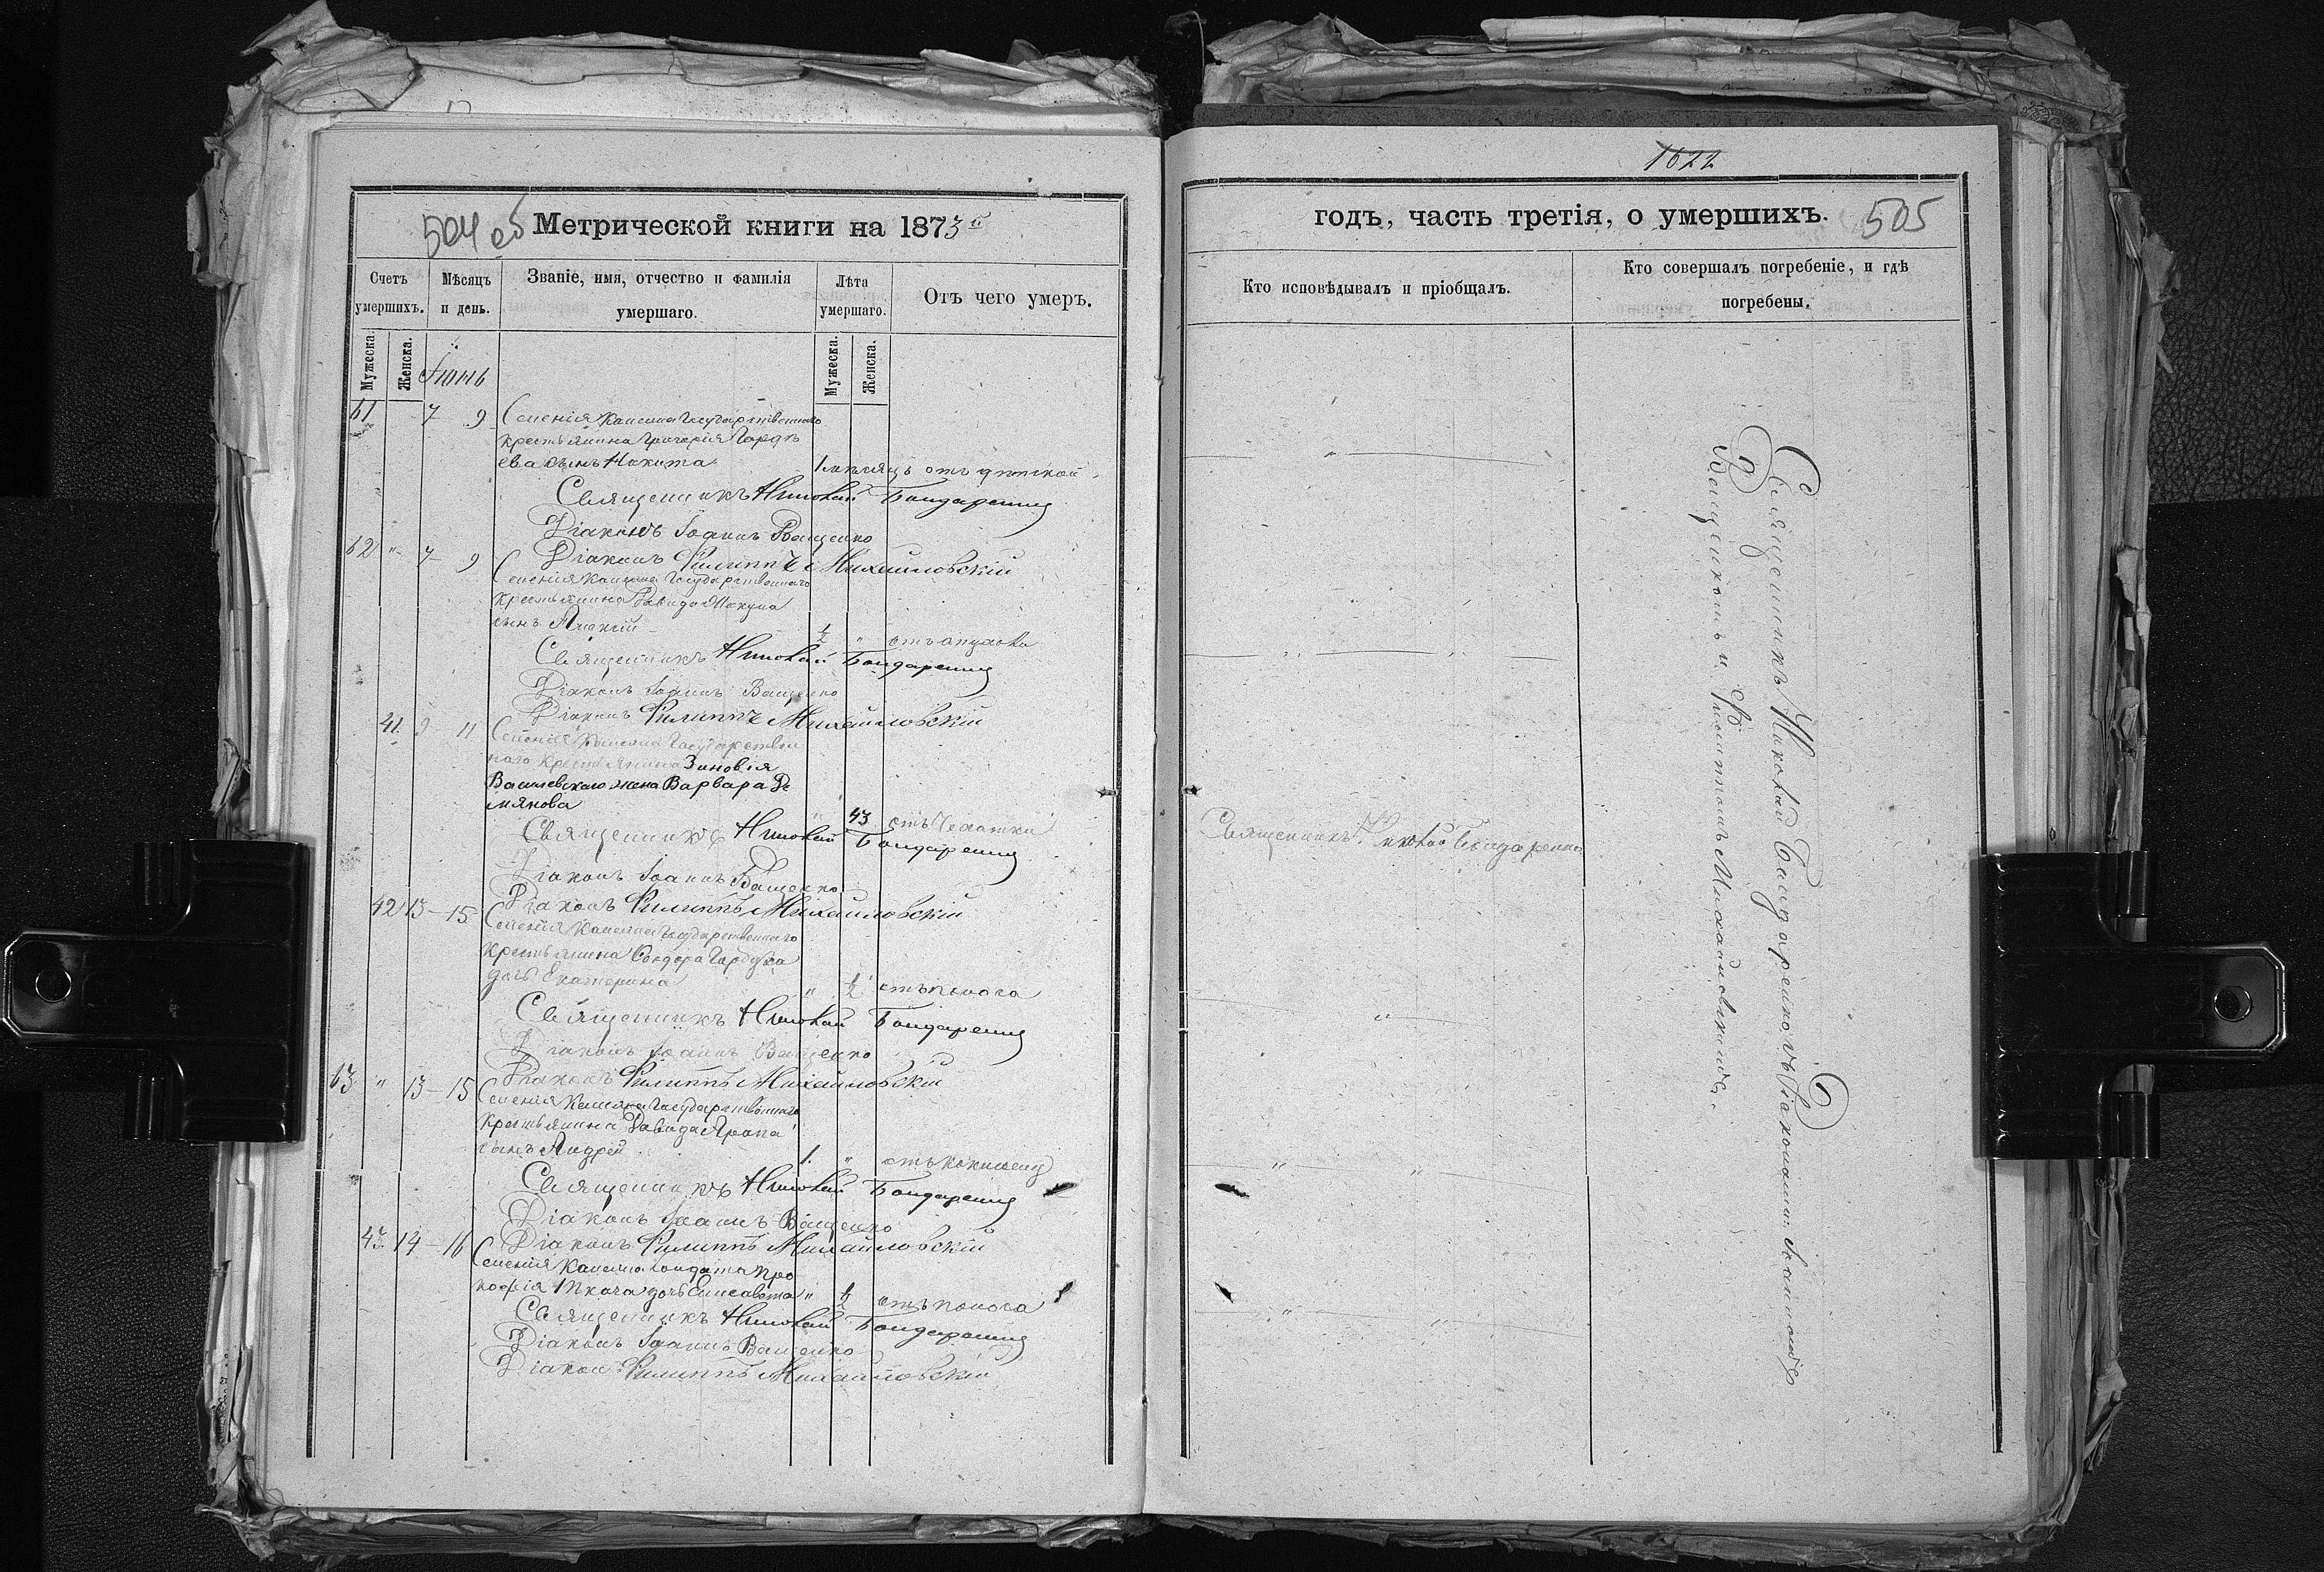 504 об
Метрической книги на 1873 й
Счетъ умершихъ.
Мѣсяцъ и день.
Званіе, имя, отчество и фамилія умершаго.
Лѣта умершаго.
Отъ чего умеръ.
Мужеска.
Женска.
Іюнь
Мужеска.
Женска.
61 7 9 Селенія Каменна Государственнаго
крестьянина Григорія Гордѣ
ева сынъ Никита 1. мѣсяцъ отъ
Священникъ Николай Бондаренко
Діаконъ Іоаннъ Ващенко
62 " 7 9 Діаконъ Филиппъ Михайловскій
Селенія Каменна Государственнаго
крестьянина Давида
сынъ Алексій 1/2 "
Священникъ Николай Бондаренко
Діаконъ Іоаннъ Ващенко
Діаконъ Филиппъ Михайловскій
41. 9 11 Селенія Каменна Государствен
наго крестьянина Зиновія
Василевскаго жена Варвара Де
мянова
" 43 отъ чахотки
Священникъ Николай Бондаренко
Діаконъ Іоаннъ Ващенко
Діаконъ Филиппъ Михайловскій
42 13 - 15 Селенія Каменна Государственнаго
крестьянина
дочь Екатерина " 1/2 отъ поноса
Священникъ Николай Бондаренко
Діаконъ Іоаннъ Ващенко
Діаконъ Филиппъ Михайловскій
63 " 13 - 15 Селенія Каменна Государственнаго
крестьянина Давида
сынъ Андрей 1. "
Священникъ Николай Бондаренко
Діаконъ Іоаннъ Ващенко
Діаконъ Филиппъ Михайловскій
43. 14 - 16 Селенія Каменна солдата Про
кофія Ткача дочь Елисавета " 1/2 отъ поноса
Священникъ Николай Бондаренко
Діаконъ Іоаннъ Ващенко
Діаконъ Филиппъ Михайловскій
1622
годъ, часть третія, о умершихъ.
505
Кто исповѣдывалъ и пріобщалъ.
Кто совершалъ погребеніе, и гдѣ погребены.
Священникъ Николай Бондаренко
Священникъ Николай Бондаренко съ Діаконами: Іоанномъ
Ващенкомъ и Филиппомъ Михайловскимъ.